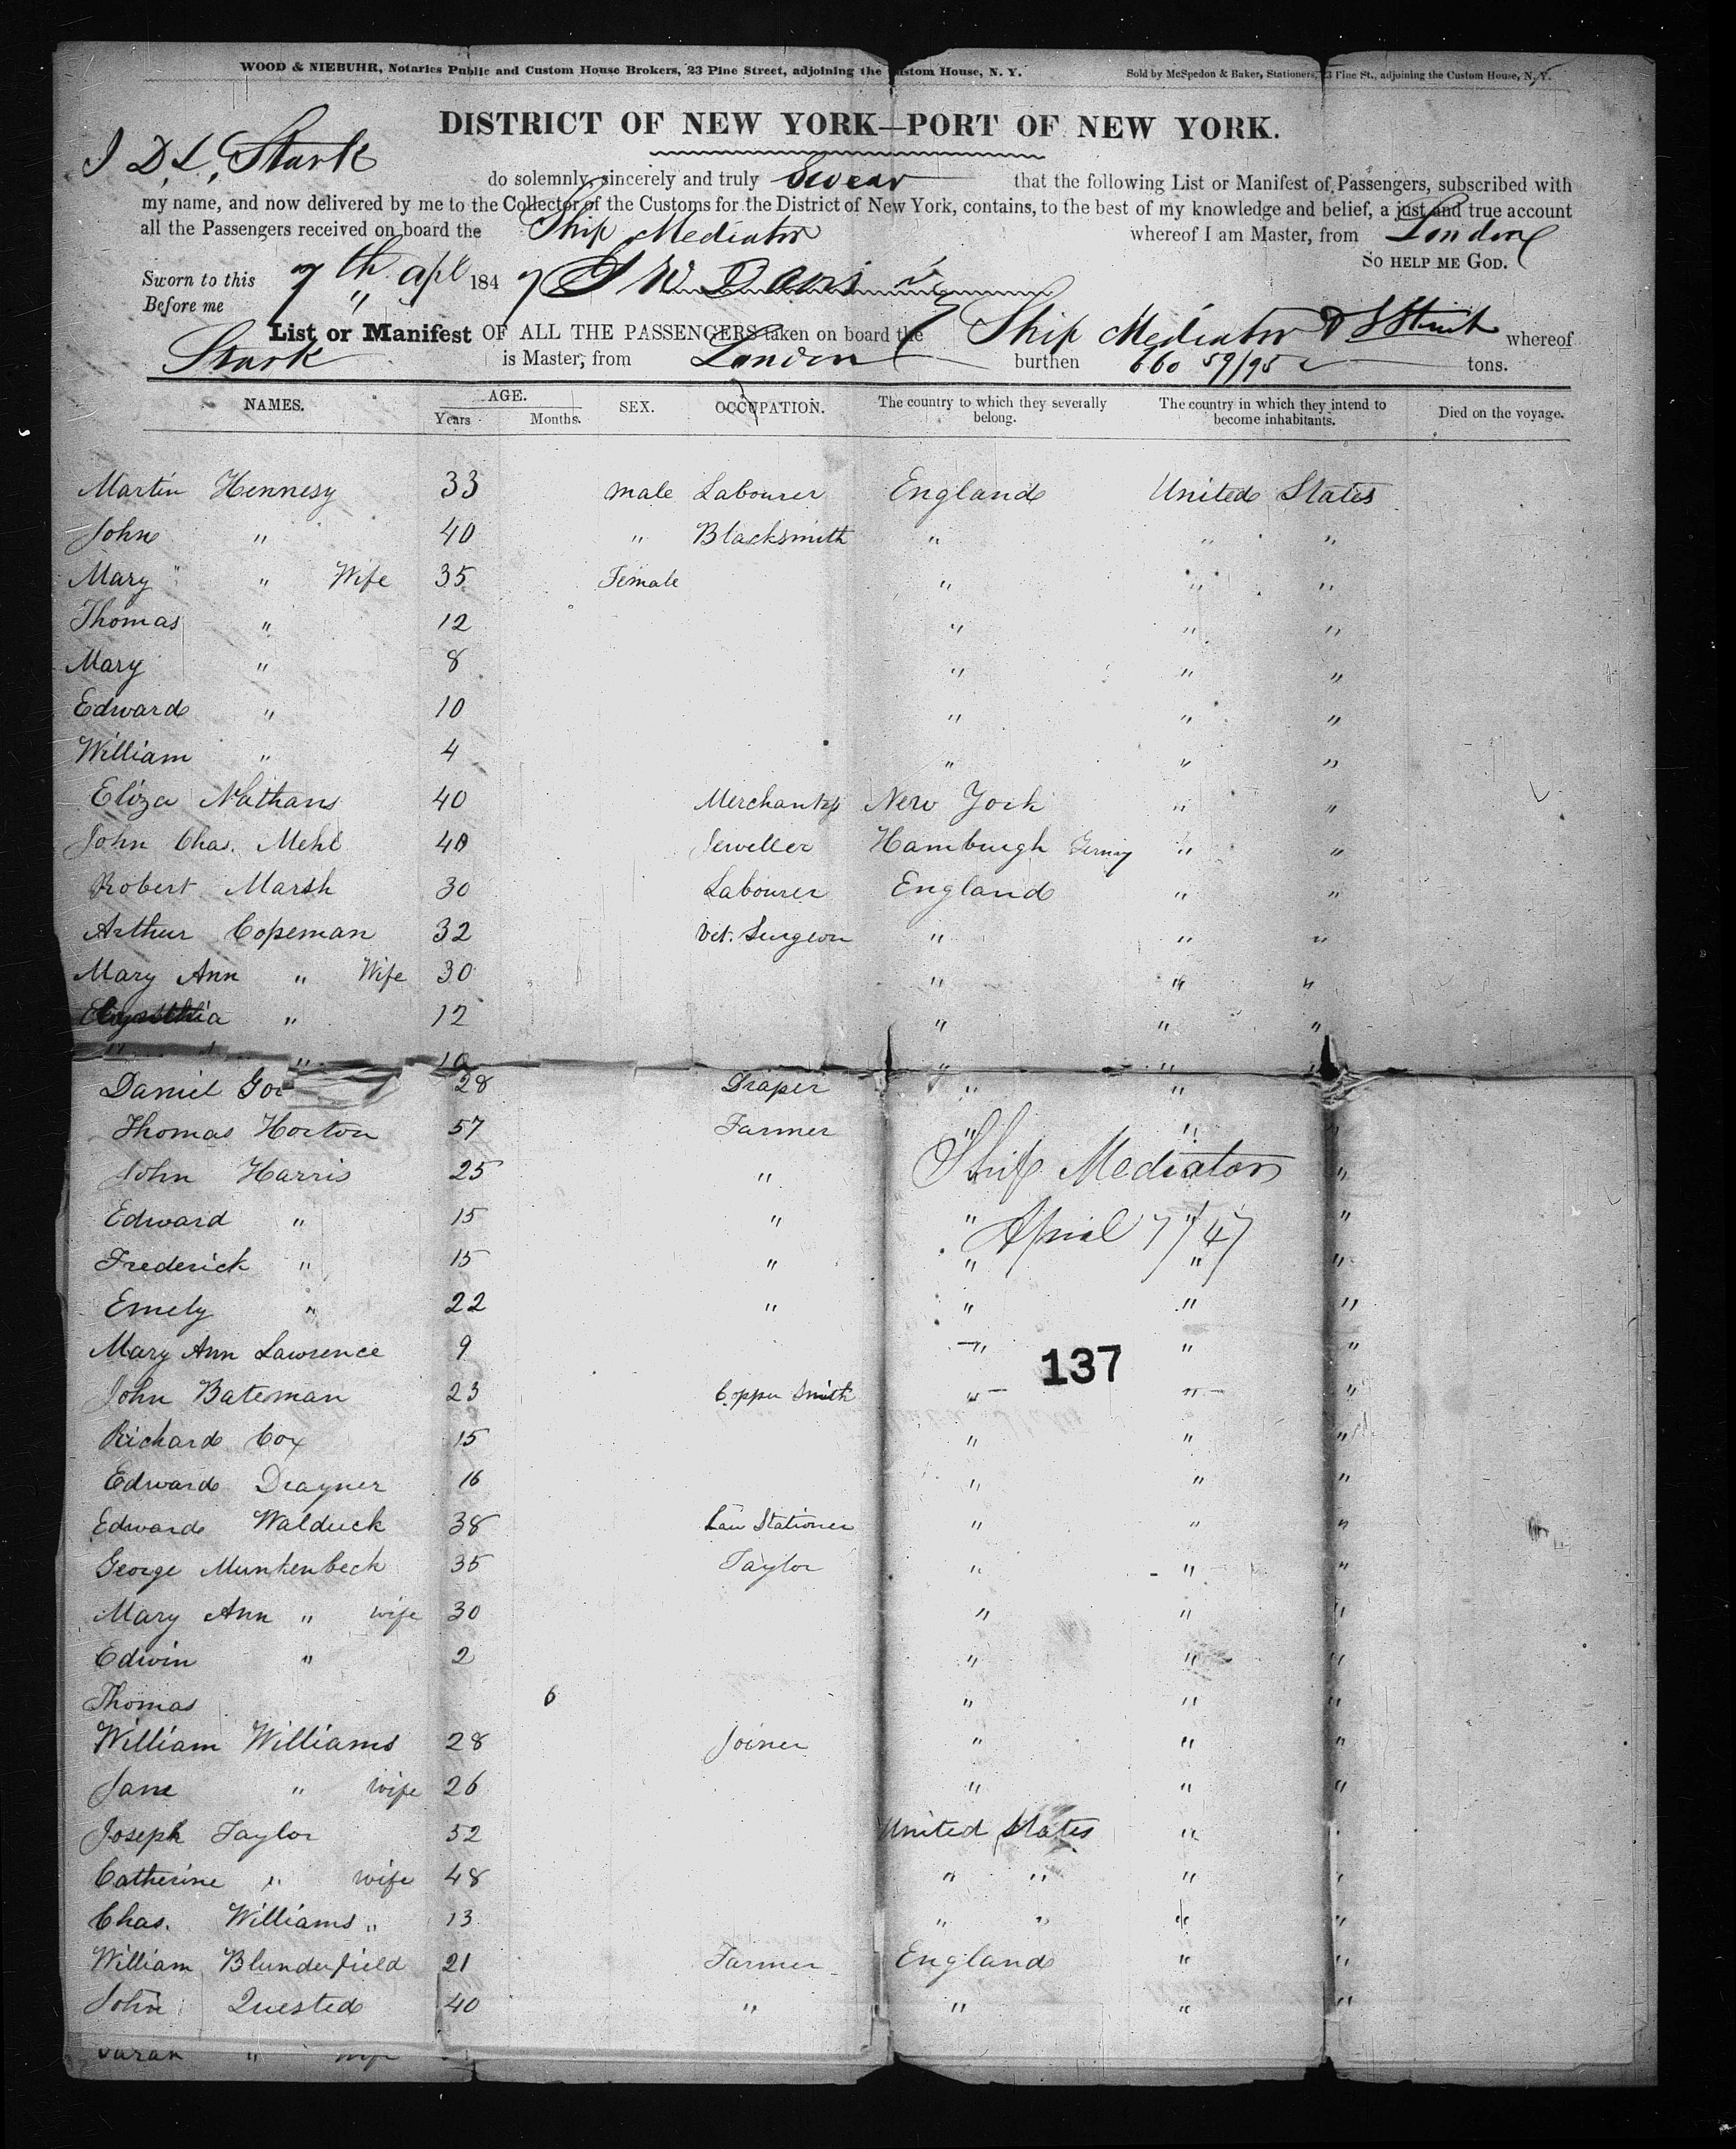 WOOD & NIEBUHR, Notaries Public and Custom House Brokers, 23 Pine Street, adjoining the Custom House, N. Y. Sold by McSpedon & Baker, Stationers, 23 Pine St., adjoining the Custom House, N. Y.
DISTRICT OF NEW YORK—PORT OF NEW YORK.
I D. L. Stark do solemnly, sincerely and truly Swear that the following List or Manifest of Passengers, subscribed with
my name, and now delivered by me to the Collector of the Customs for the District of New York, contains, to the best of my knowledge and belief, a just and true account
all the Passengers received on board the Ship Mediator whereof I am Master, from London
SO HELP ME GOD.
Sworn to this 7th Apl 1847
Before me "
List or Manifest OF ALL THE PASSENGERS taken on board the Ship Mediator whereof
Stark is Master, from London burthen 660 59/95 tons.
NAMES. AGE. SEX. OCCUPATION. The country to which they severally belong. The country in which they intend to become inhabitants. Died on the voyage.
Years Months.
Martin Hennesy 33 male Labourer England United States
John " 40 " Blacksmith " " "
Mary " Wife 35 Female " " "
Thomas " 12 " " "
Mary " 8 " " "
Edward " 10 " " "
William " 4 " " "
Eliza Nathans 40 New York " "
John Chas. Mehl 40 Jeweller Hamburgh " "
Robert Marsh 30 Labourer England " "
Arthur Copeman 32 Vet. Surgeon " " "
Mary Ann " Wife 30 " " "
" 12 " " "
" 10 " " "
Daniel 28 Draper " "
Thomas Horton 57 Farmer " " "
John Harris 25 " "
Ship Mediator
Edward " 15 " " " "
April 7/47
Frederick " 15 " " " "
Emely " 22 " " " "
Mary Ann Lawrence 9 " " "
137
John Bateman 23 Copper Smith " " "
Richard Cox 15 " " "
Edward Drayner 16 " " "
Edward Walduck 38 Law Stationer " " "
George Muntenbeck 35 Taylor " " "
Mary Ann " wife 30 " " "
Edwin " 2 " " "
Thomas 6 " " "
William Williams 28 Joiner " " "
Jane " wife 26 " " "
Joseph Taylor 52 United States "
Catherine " wife 48 " " "
Chas. Williams " 13 " " " "
William Blunderfield 21 Farmer England " "
John Quested 40 " " " "
Sarah " wife